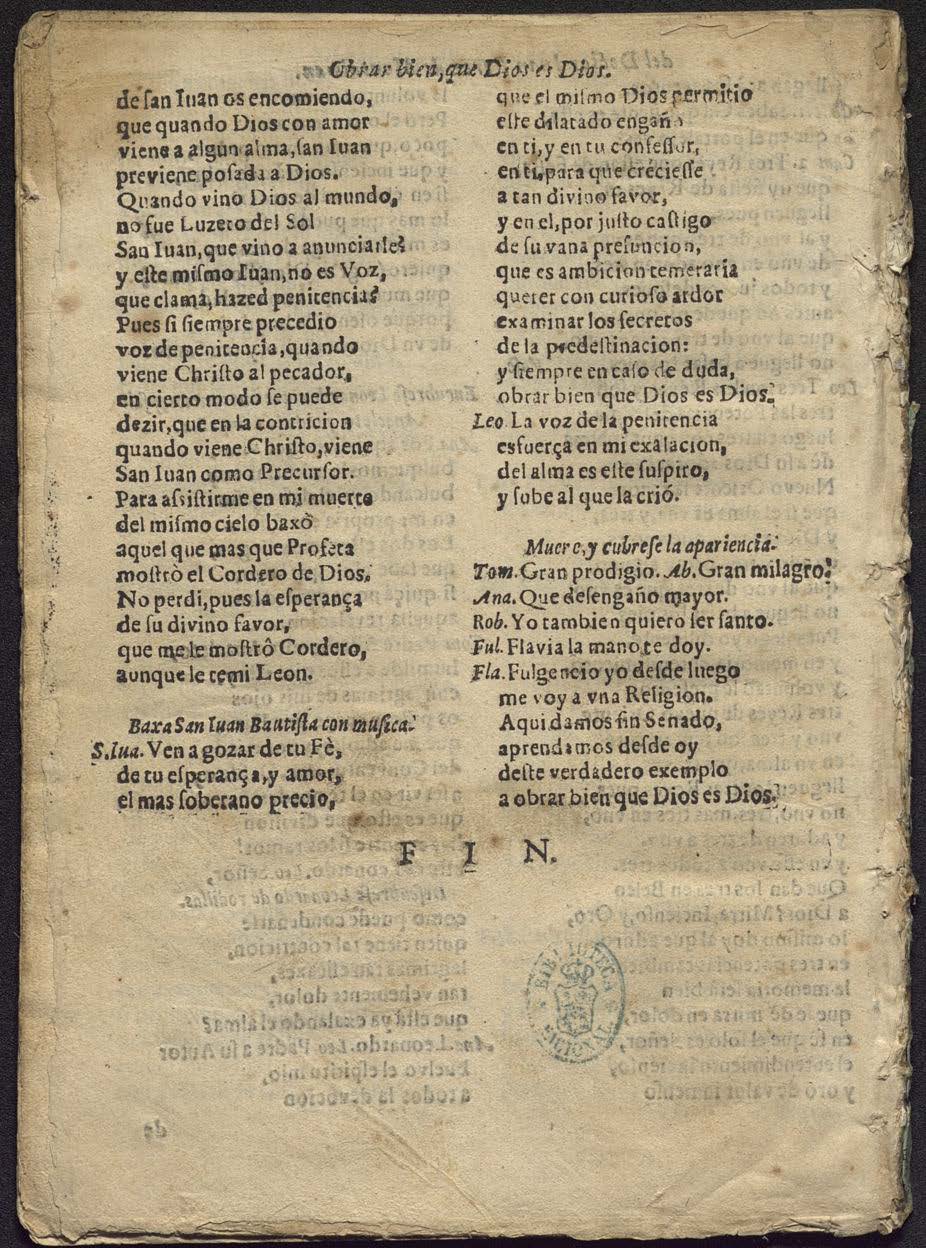 Obrar bien, que Dios es Dios.
de san Iuan os encomiendo,
que quando Dios con amor
viene a algun alma, san Iuan
previene posada a Dios.
Quando vino Dios al mundo,
no fue Luzero del Sol
San Iuan, que vino a anunciarle?
y este mismo Iuan, no es Voz,
que clama, hazed penitencia?
Pues si siempre precedio
voz de penitencia, quando
viene Christo al pecador,
en cierto modo se puede
dezir, que en la contricion
quando viene Christo, viene
San Iuan como Precursor.
Para assistirme en mi muerte
del mismo cielo baxò
aquel que mas que Profeta
mostrò el Cordero de Dios.
No perdi, pues la esperança
de su divino favor,
que me le mostrô Cordero,
aunque le temi Leon.
Baxa San Iuan Bautista con musica.
S. Iua. Ven a gozar de tu Fè,
de tu esperança, y amor,
el mas soberano precio,
que el mismo Dios permitio
este dilatado engaño
en ti, y en tu confessor,
en ti, para que creciesse
a tan divino favor,
y en el, por justo castigo
de su vana presuncion,
que es ambicion temeraria
querer con curioso ardor
examinar los secretos
de la predestinacion:
y siempre en caso de duda,
obrar bien que Dios es Dios.
Leo. La voz de la penitencia
esfuerça en mi exalacion,
del alma es este suspiro,
y sube al que la crió.
Muere, y cubrese la apariencia.
Tom. Gran prodigio. Ab. Gran milagro!
Ana. Que desengaño mayor.
Rob. Yo tambien quiero ser santo.
Ful. Flavia la mano te doy.
Fla. Fulgencio yo desde luego
me voy a vna Religion.
Aqui damos fin Senado,
aprendamos desde oy
deste verdadero exemplo
a obrar bien que Dios es Dios.
F I N.
BIBLIOTECA